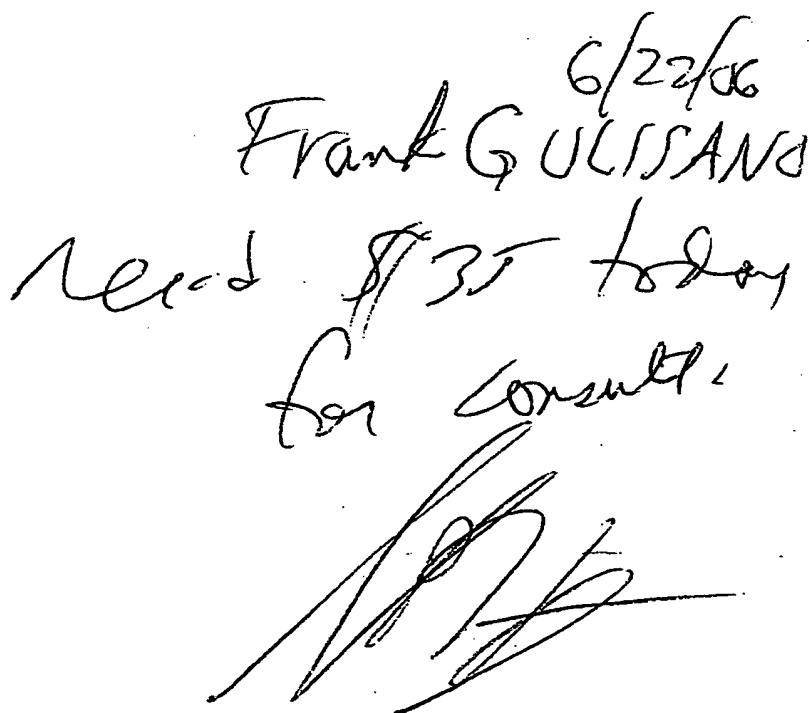 6/22/06
Frank GULISSANO
$35 today
for consult.